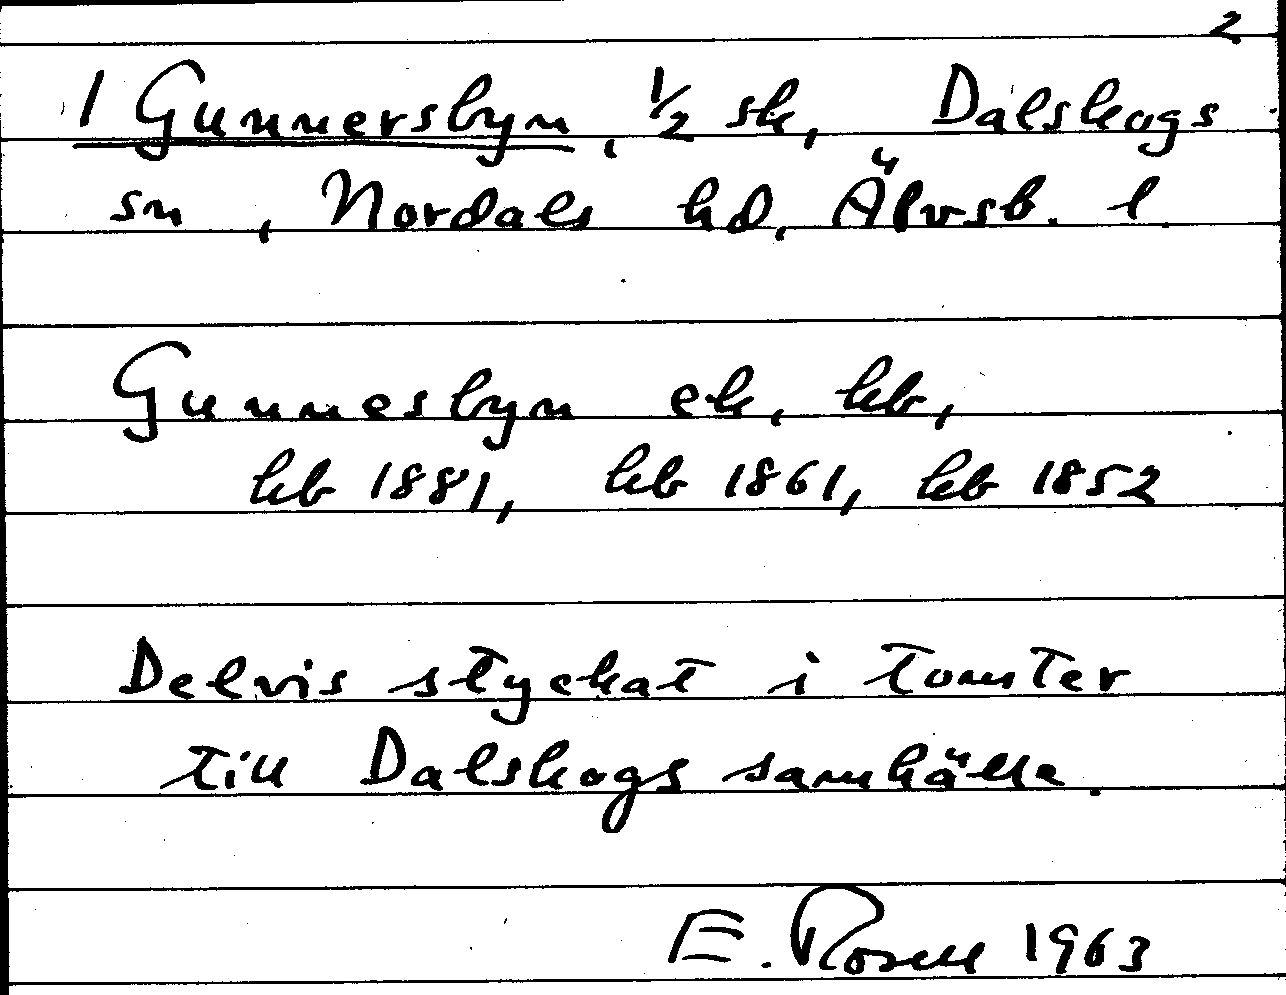 2
1 Gunnersbyn, 1/2 sk, Dalskogs
sn, Nordals hd, Älvsb. l.
Gunnesbyn ek, kb,
kb 1881, kb 1861, kb 1852
Delvis styckat i tomter
till Dalskogs samhälle.
E. Rosell 1963